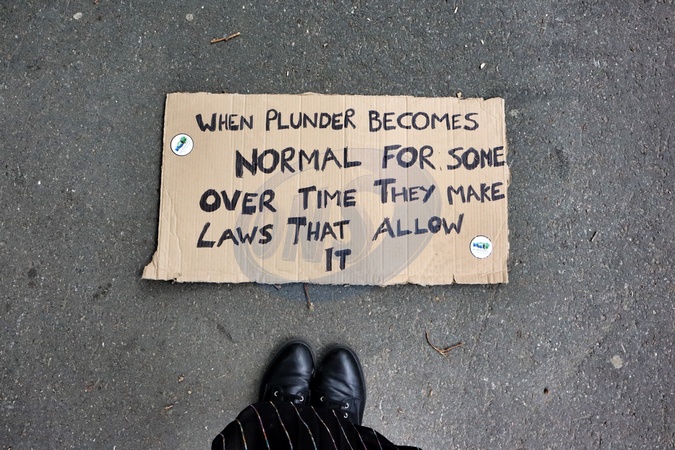 WHEN PLUNDER BECOMES
NORMAL FOR SOME
OVER TIME THEY MAKE
LAWS THAT ALLOW
IT